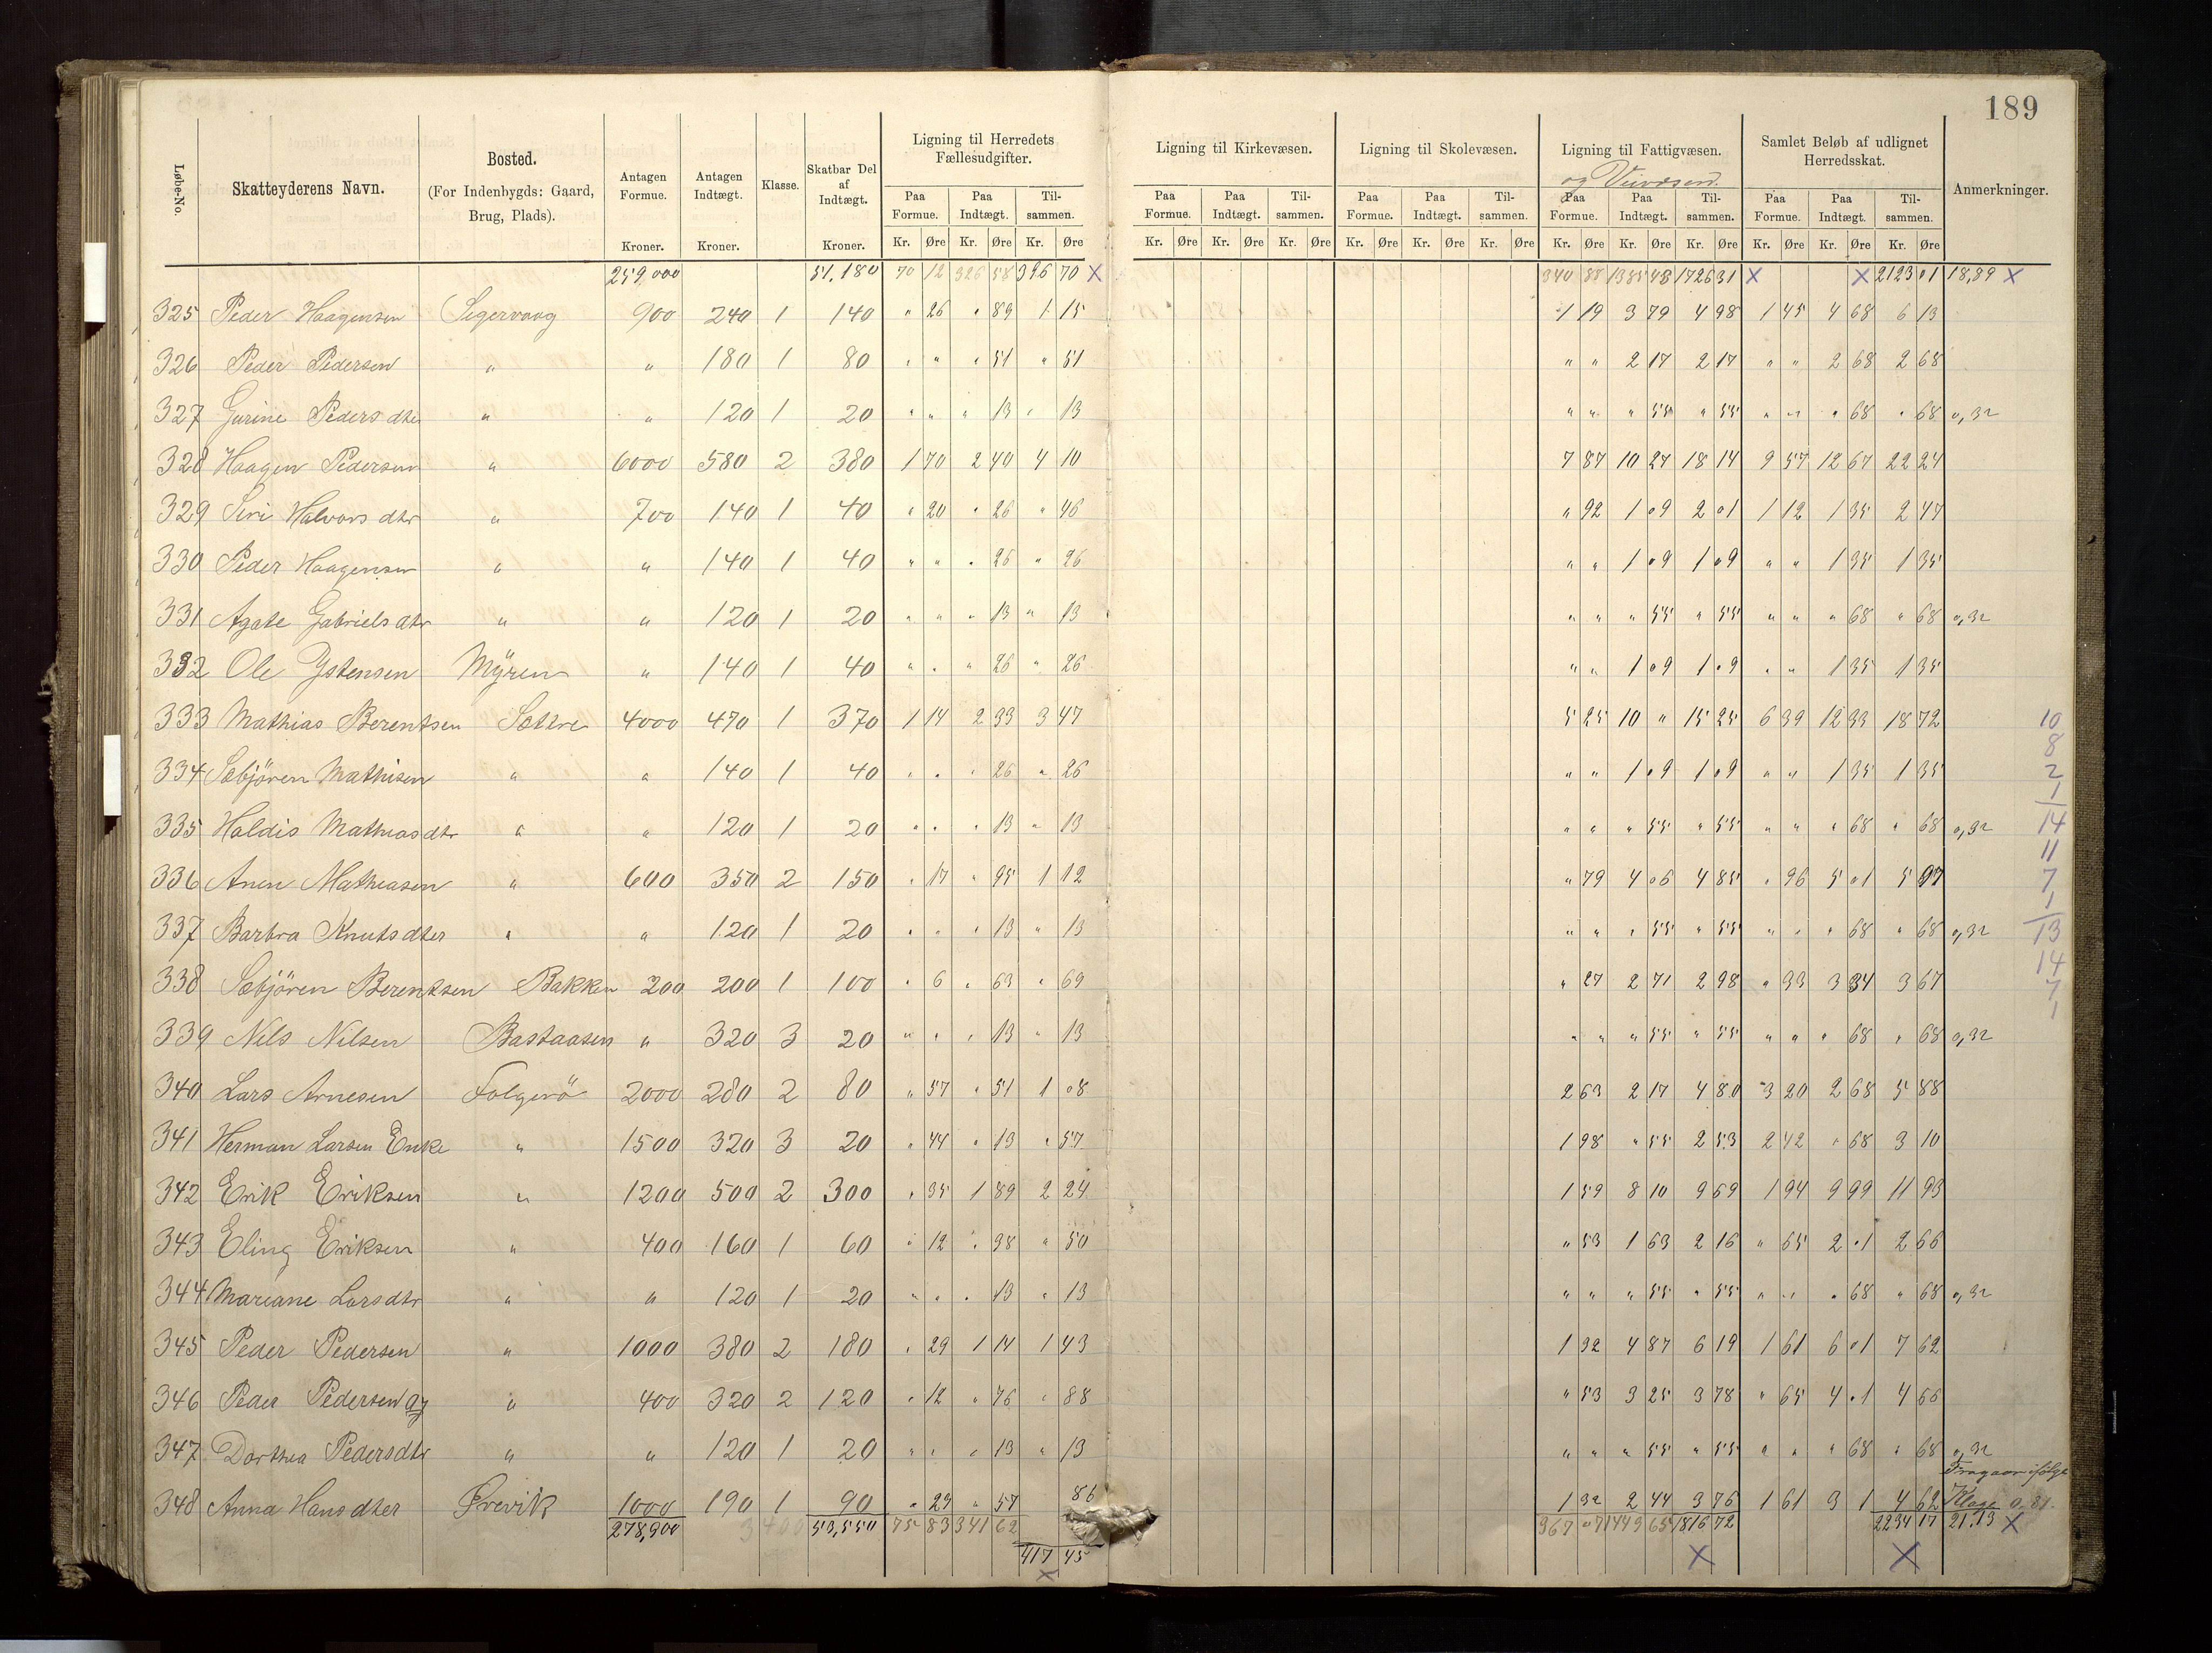 189
Løbe-No. Skatteyderens Navn. Bosted. (For Indenbygds: Gaard, Brug, Plads). Antagen Formue. Kroner. Antagen Indtægt. Kroner. Klasse. Skatbar Del af Indtægt. Kroner. Ligning til Herredets Fællesudgifter. Paa Formue. Paa Indtægt. Tilsammen. Kr. Øre Kr. Øre Kr. Øre Ligning til Kirkevæsen. Paa Formue. Paa Indtægt. Tilsammen. Kr. Øre Kr. Øre Kr. Øre Ligning til Skolevæsen. Paa Formue. Paa Indtægt. Tilsammen. Kr. Øre Kr. Øre Kr. Øre Ligning til Fattigvæsen. og Veivæsen. Paa Formue. Paa Indtægt. Tilsammen. Kr. Øre Kr. Øre Kr. Øre Samlet Beløb af udlignet Herredsskat. Paa Formue. Paa Indtægt. Tilsammen. Kr. Øre Kr. Øre Kr. Øre Anmerkninger.
259,000 51,180 70 12 326 58 396 70 X 340 88 1385 43 1726 31 X X 2123 01 18,89 X
325 Peder Haagensen Segervaag 900 240 1 140 " 26 " 89 1 15 1 19 3 79 4 98 1 45 4 68 6 13
326 Peder Pedersen " " 180 1 80 " " " 51 " 51 " " 2 17 2 17 " " 2 68 2 68
327 Gurine Pedersdter " " 120 1 20 " " " 13 " 13 " " " 55 " 55 " " " 68 " 68 0,32
328 Haagen Pedersen " 6000 580 2 380 1 70 2 40 4 10 7 87 10 27 18 14 9 57 12 67 22 24
329 Siri Halvorsdtr " 700 140 1 40 " 20 " 26 " 46 " 92 1 09 2 01 1 12 1 35 2 47
330 Peder Haagensen " " 140 1 40 " " " 26 " 26 " " 1 09 1 09 " " 1 35 1 35
331 Agate Gabrielsdtr " " 120 1 20 " " " 13 " 13 " " " 55 " 55 " " " 68 " 68 0,32
332 Ole Ystensen Myren " 140 1 40 " " " 26 " 26 " " 1 09 1 09 " " 1 35 1 35
333 Mathias Berentsen Sætre 4000 470 1 370 1 14 2 33 3 47 5 25 10 " 15 25 6 39 12 33 18 72 10
8
334 Sæbjören Mathisen " " 140 1 40 " " " 26 " 26 " " 1 09 1 09 " " 1 35 1 35 2
1
335 Haldis Mathiasdtr " " 120 1 20 " " " 13 " 13 " " " 55 " 55 " " " 68 " 68 0,32 14
11
336 Anen Mathiasen " 600 350 2 150 " 17 " 95 1 12 " 79 4 06 4 85 " 96 5 01 5 97 7
1
337 Barbra Knutsdter " " 120 1 20 " " " 13 " 13 " " " 55 " 55 " " " 68 " 68 0,32 13
14
338 Sæbjören Berentsen Bakken 200 200 1 100 " 6 " 63 " 69 " 27 2 71 2 98 " 33 3 34 3 67 7
1
339 Nils Nilsen Bastaasen " 320 3 20 " " " 13 " 13 " " " 55 " 55 " " " 68 " 68 0,32
340 Lars Arnesen Folgerö 2000 280 2 80 " 57 " 51 1 08 2 63 2 17 4 80 3 20 2 68 5 88
341 Herman Larsen Enke " 1500 320 3 20 " 44 " 13 " 57 1 98 " 55 2 53 2 42 " 68 3 10
342 Erik Eriksen " 1200 500 2 300 " 35 1 89 2 24 1 59 8 10 9 69 1 94 9 99 11 93
343 Eling Eriksen " 400 160 1 60 " 12 " 38 " 50 " 53 1 63 2 16 " 65 2 01 2 66
344 Mariane Larsdtr " " 120 1 20 " " " 13 " 13 " " " 55 " 55 " " " 68 " 68 0,32
345 Peder Pedersen " 1000 380 2 180 " 29 1 14 1 43 1 32 4 87 6 19 1 61 6 01 7 62
346 Peder Pedersen yg " 400 320 2 120 " 12 " 76 " 88 " 53 3 25 3 78 " 65 4 01 4 66
347 Dorthea Pedersdtr " " 120 1 20 " " " 13 " 13 " " " 55 " 55 " " " 68 " 68 0,32
Fragaar ifölge
348 Anna Hansdter Ørevik 1000 190 1 90 " 29 " 57 86 1 32 2 44 3 76 1 61 3 1 4 62 Klage 0,81
278,900 53,550 75 83 341 62 367 07 1449 65 1816 72 2234 17 21.13 X
417 45 X X
X